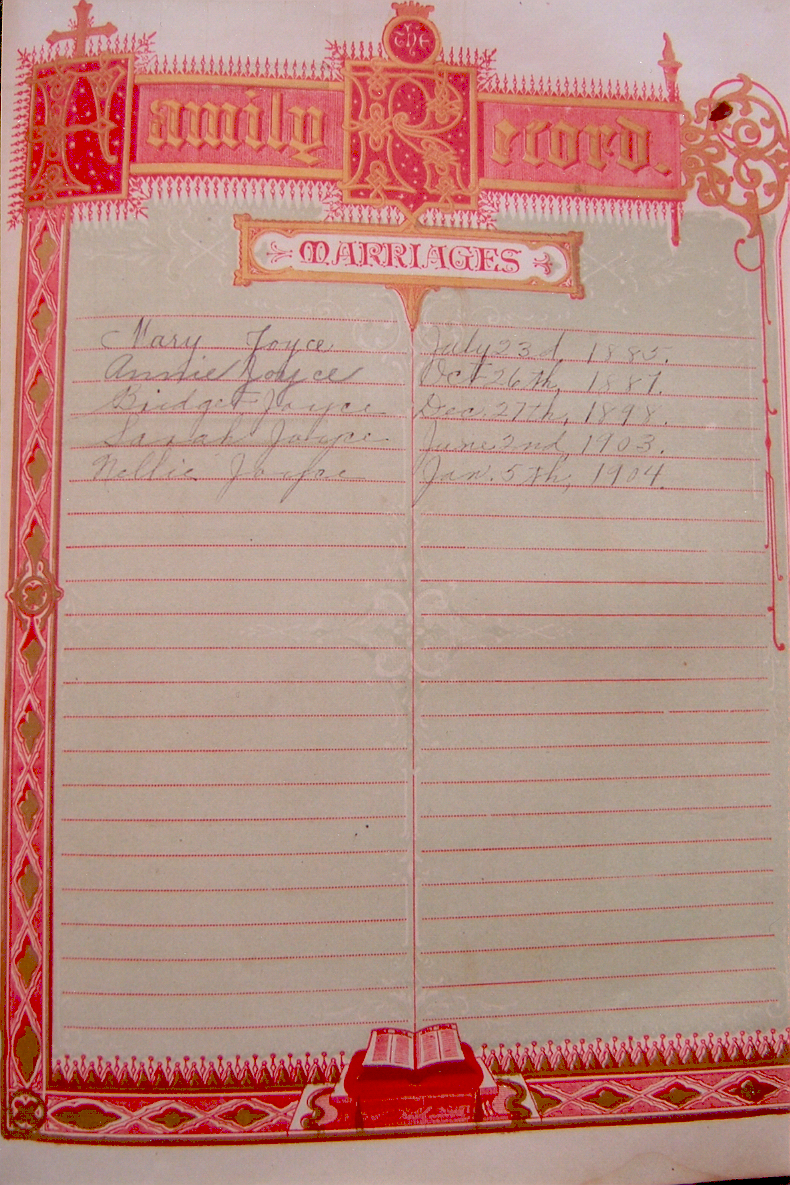 The
Family Record.
MARRIAGES
Mary Joyce July 23d, 1885.
Annie Joyce Oct 26th, 1887.
Bridget Joyce Dec. 27th, 1898.
Sarah Joyce June 2nd, 1903.
Nellie Joyce Jan. 5th, 1904.